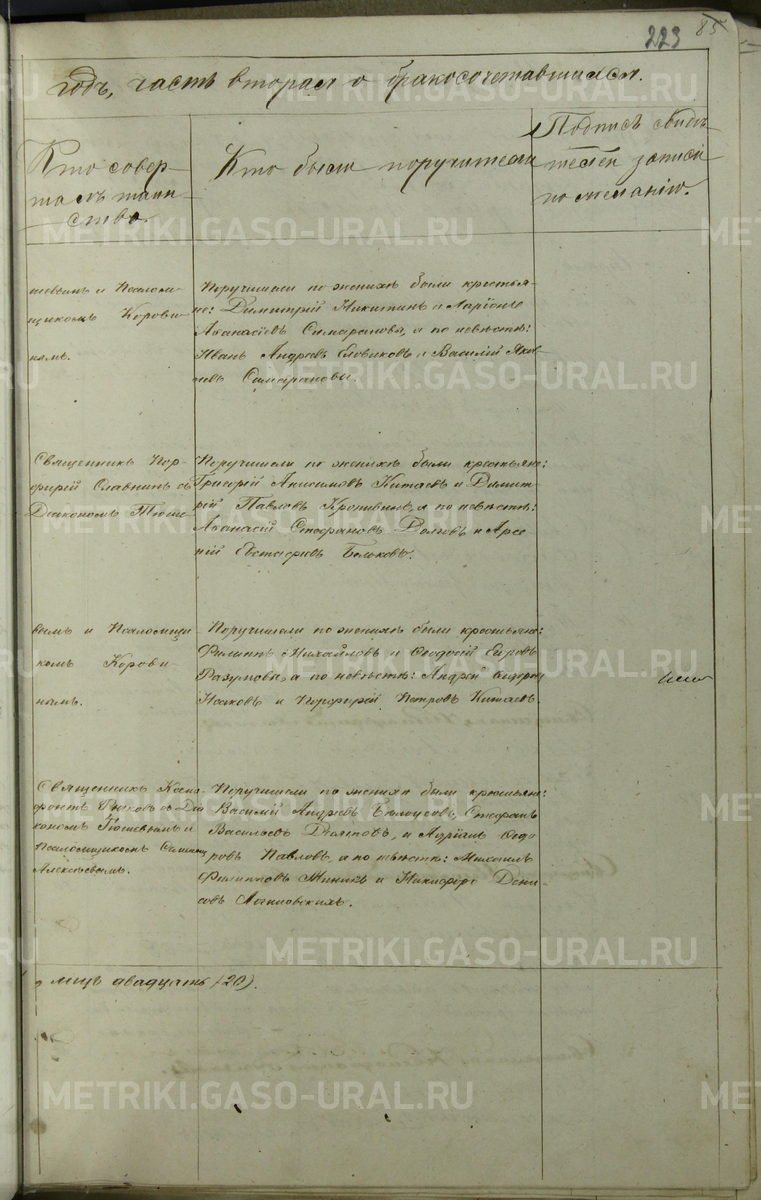 223 85
годъ, часть вторая о бракосочетавшихся.
Кто совер-
шалъ таин-
ство.
Кто были поручители
Подпись свидѣ-
телей записи
по желанію.
шевымъ и Псалом-
щикомъ Корови-
нымъ.
Поручители по женихѣ были крестья-
не: Димитрій Никитинъ и Ларіонъ
Аѳанасіевъ Самараковы, а по невѣстѣ:
Иванъ Андреевъ и Василій Яков-
левъ
Священникъ Пор-
фирій Славнинъ съ
Діакономъ Тюше-
Поручители по женихѣ были крестьяне:
Григорій Анисимовъ Китаевъ и Димит-
рій Павловъ а по невѣстѣ:
Аѳанасій Стефановъ и Арсе
ній Евстафіевъ Бѣлковъ.
вымъ и Псаломщи-
комъ Корови-
нымъ.
Поручители по женихѣ были крестьяне:
Филиппъ Михайловъ и Ѳеодосій
Разумовы, а по невѣстѣ: Андрей
и Порфирій Петровъ Китаевъ.
Священникъ Ксено-
фонтъ съ Діа
кономъ Тюшевымъ и
Псаломщикомъ
Алексѣевымъ.
Поручители по женихѣ были крестьяне:
Василій Андреевъ Бѣлоусовъ, Стефанъ
Василіевъ и Адріанъ Ѳедо
ровъ Павловъ, а по невѣстѣ: Михаилъ
Филипповъ и Никифоръ Дени-
совъ
лицъ двадцать (20).
METRIKI.GASO-URAL.RU